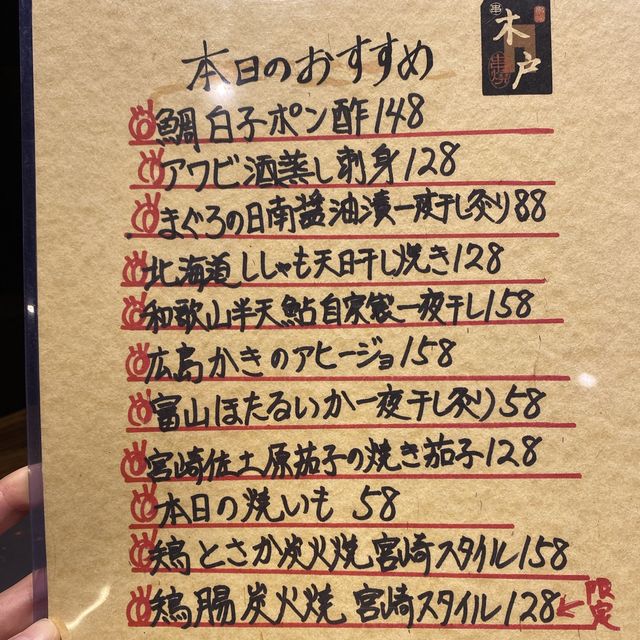 木戸
本日のおすすめ
鯛白子ポン酢148
アワビ酒蒸し刺身128
まぐろの日南醤油漬一夜干し炙り88
北海道ししゃも天日干し焼き128
和歌山半天鮎自家製一夜干し158
広島かきのアヒージョ158
富山ほたるいか一夜干し炙り58
宮崎佐土原茄子の焼き茄子128
本日の焼いも 58
鶏とさか炭火焼 宮崎スタイル158
鶏腸炭火焼 宮崎スタイル128←限定